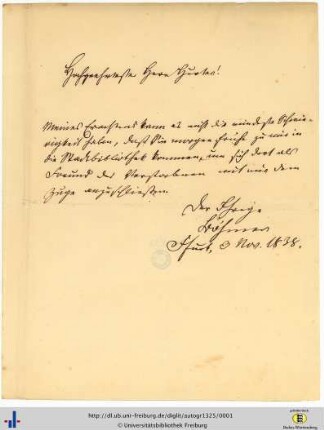 Hochgeehrtester Herr Hurter!
Meines Erachtens kann es nicht die mindeste Schwie-
rigkeit haben, daß Sie morgen frühe zu mir in
die Stadtbibliothek kommen, um sich dort als
Freund des Verstorbenen mit mir dem
Zuge anzuschließen.
Der Ihrige
Böhmer
Ffurt, 3 Nov. 1838.
http://dl.ub.uni-freiburg.de/diglit/autogr1325/0001
© Universitätsbibliothek Freiburg
Baden-Württemberg